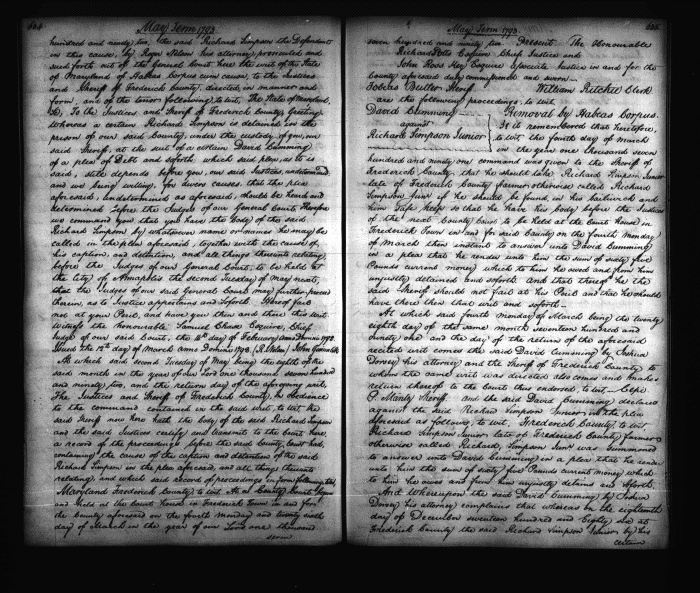 654
May Term 1793
hundred and ninety two, the said Richard Simpson the Defendant
in this cause, by Roger Nelson his attorney, prosecuted and
sued forth out of the General Court here the writ of the State
of Maryland of Habeas Corpus cum causa, to the Justices
and Sheriff of Frederick County, directed in manner and
form, and of the tenor following, to wit, The State of Maryland,
To the Justices and Sheriff of Frederick County, Greeting,
Whereas a certain Richard Simpson is detained in the
prison of our said County, under the custody of you, our
said Sheriff, at the suit of a certain David Cumming
of a plea of Debt and soforth, which said plea, as it is
said, still depends before you, our said Justices, undetermined
and we being willing, for divers causes, that the plea
aforesaid, undetermined as aforesaid, should be heard and
determined before the Judges of our General Court Therefore
we command you that you have the body of the said
Richard Simpson by whatsoever name or names he may be
called in the plea aforesaid, together with the cause of
his caption, and detention, and all things thereunto relating,
before the Judges of our General Court, to be held at
the City of Annapolis the second Tuesday of May next,
that the Judges of our said General Court may further proceed
herein, as to Justice appertains and soforth. Hereof fail
not at your Peril, and have you then and there this writ.
Witness the Honourable Samuel Chase Esquire, Chief
Judge of our said Court, the day of February anno Domini 1792
Issued the 12th day of March anno Domini 1792 (R. Nelson) John Gwinn Clk
At which said second Tuesday of May being the eighth of the
said month the year of our Lord one thousand seven hundred
and ninety two, and the return day of the aforegoing writ,
The Justices and Sheriff of Frederick County, in obedience
to the command contained in the said writ, to wit, the
said Sheriff now here hath the body of the said Richard Simpson
and the said Justices certify and transmit to the Court here,
a record of the proceedings before the said County Court had
containing the cause of the caption and detention of the said
Richard Simpson in the plea aforesaid, and all things thereunto
relating, and which said record of proceedings in form following, to wit,
Maryland Frederick County, to wit. At a County Court begun
and held at the Court House in Frederick Town in and for
the County aforesaid on the fourth Monday and twenty sixth
day of March in the year of our Lord one thousand
seven
May Term 1793
655
seven hundred and ninety two. Present The Honourable
Richard Potts Esquire Chief Justice and
John Ross Key Esquire Associate Justice in and for the
County aforesaid duly commissioned and sworn
William Ritchie Clerk
are the following proceedings, to wit
David Cumming
against
Richard Simpson Junior
Removal by Habeas Corpus.
Be it remembered that heretofore,
to wit the fourth day of March
in the year one thousand seven
hundred and ninety one command was given to the Sheriff of
Frederick County, that he should take Richard Simpson Junior
late of Frederick County farmer otherwise called Richard
Simpson Junr if he should be found in his bailiwick and
him safe keep so that he have his body before the Justices
of the next County Court to be held at the Court House in
Frederick Town in and for said County on the fourth Monday
of March then instant to answer unto David Cumming
in a plea that he render unto him the sum of sixty five
Pounds current money which to him he owed and from him
unjustly detained and soforth. And that thereof he the
said Sheriff should not fail at his Peril and that he should
have there then that writ and soforth.
At which said fourth Monday of March being the twenty
eighth day of the same month seventeen hundred and
ninety one and the day of the return of the aforesaid
recited writ comes the said David Cumming by Joshua
Dorsey his attorney and the Sheriff of Frederick County to
whom the same writ was directed also comes and makes
return thereof to the Court thus endorsed, to wit, Cepi
P. Mantz Sheriff. and the said David Cumming declares
against the said Richard Simpson Junior in the plea
aforesaid as follows, to wit, Frederick County, to wit,
Richard Simpson Junior late of Frederick County farmer
otherwise called Richard Simpson Junr was summoned
to answer unto David Cumming in a plea that he render
unto him the sum of sixty five Pounds current money which
to him he owes and from him unjustly detains and soforth.
And Whereupon the said David Cumming by Joshua
Dorsey his attorney complains that whereas on the eighteenth
day of December seventeen hundred and Eighty six at
Frederick County the said Richard Simpson Junior by his
certain